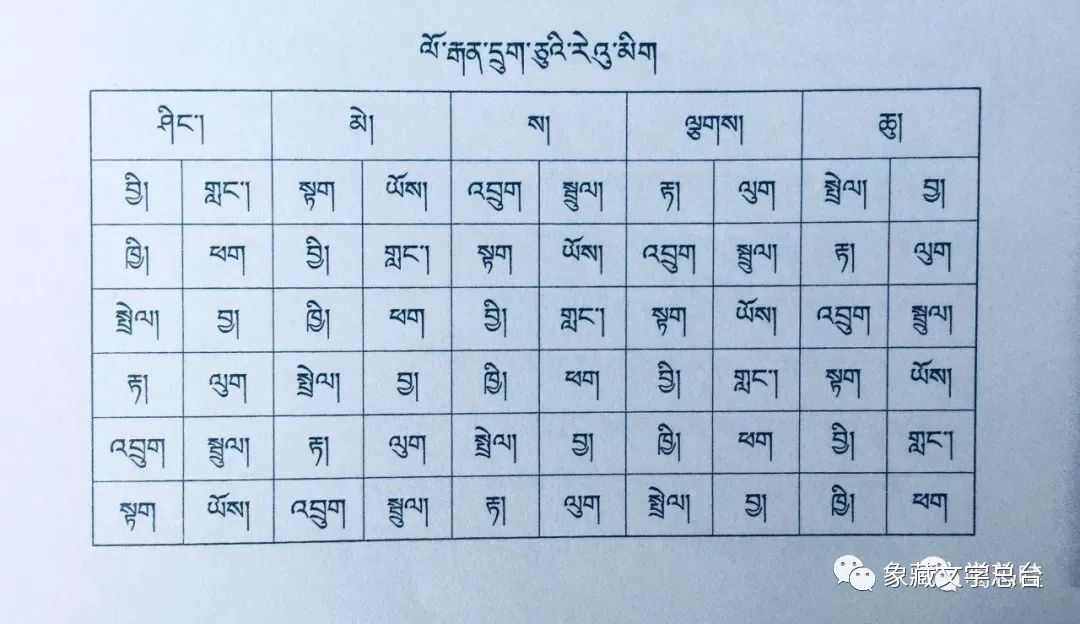 ལོ་རྒན་དྲུག་ཅུའི་རེའུ་མིག
ཤིང་། མེ། ས། ལྕགས། ཆུ།
བྱི། གླང་། སྟག ཡོས། འབྲུག སྦྲུལ། རྟ། ལུག སྤྲེལ། བྱ།
ཁྱི། ཕག བྱི། གླང་། སྟག ཡོས། འབྲུག སྦྲུལ། རྟ། ལུག
སྤྲེལ། བྱ། ཁྱི། ཕག བྱི། གླང་། སྟག ཡོས། འབྲུག སྦྲུལ།
རྟ། ལུག སྤྲེལ། བྱ། ཁྱི། ཕག བྱི། གླང་། སྟག ཡོས།
འབྲུག སྦྲུལ། རྟ། ལུག སྤྲེལ། བྱ། ཁྱི། ཕག བྱི། གླང་།
སྟག ཡོས། འབྲུག སྦྲུལ། རྟ། ལུག སྤྲེལ། བྱ། ཁྱི། ཕག
象藏文学总台